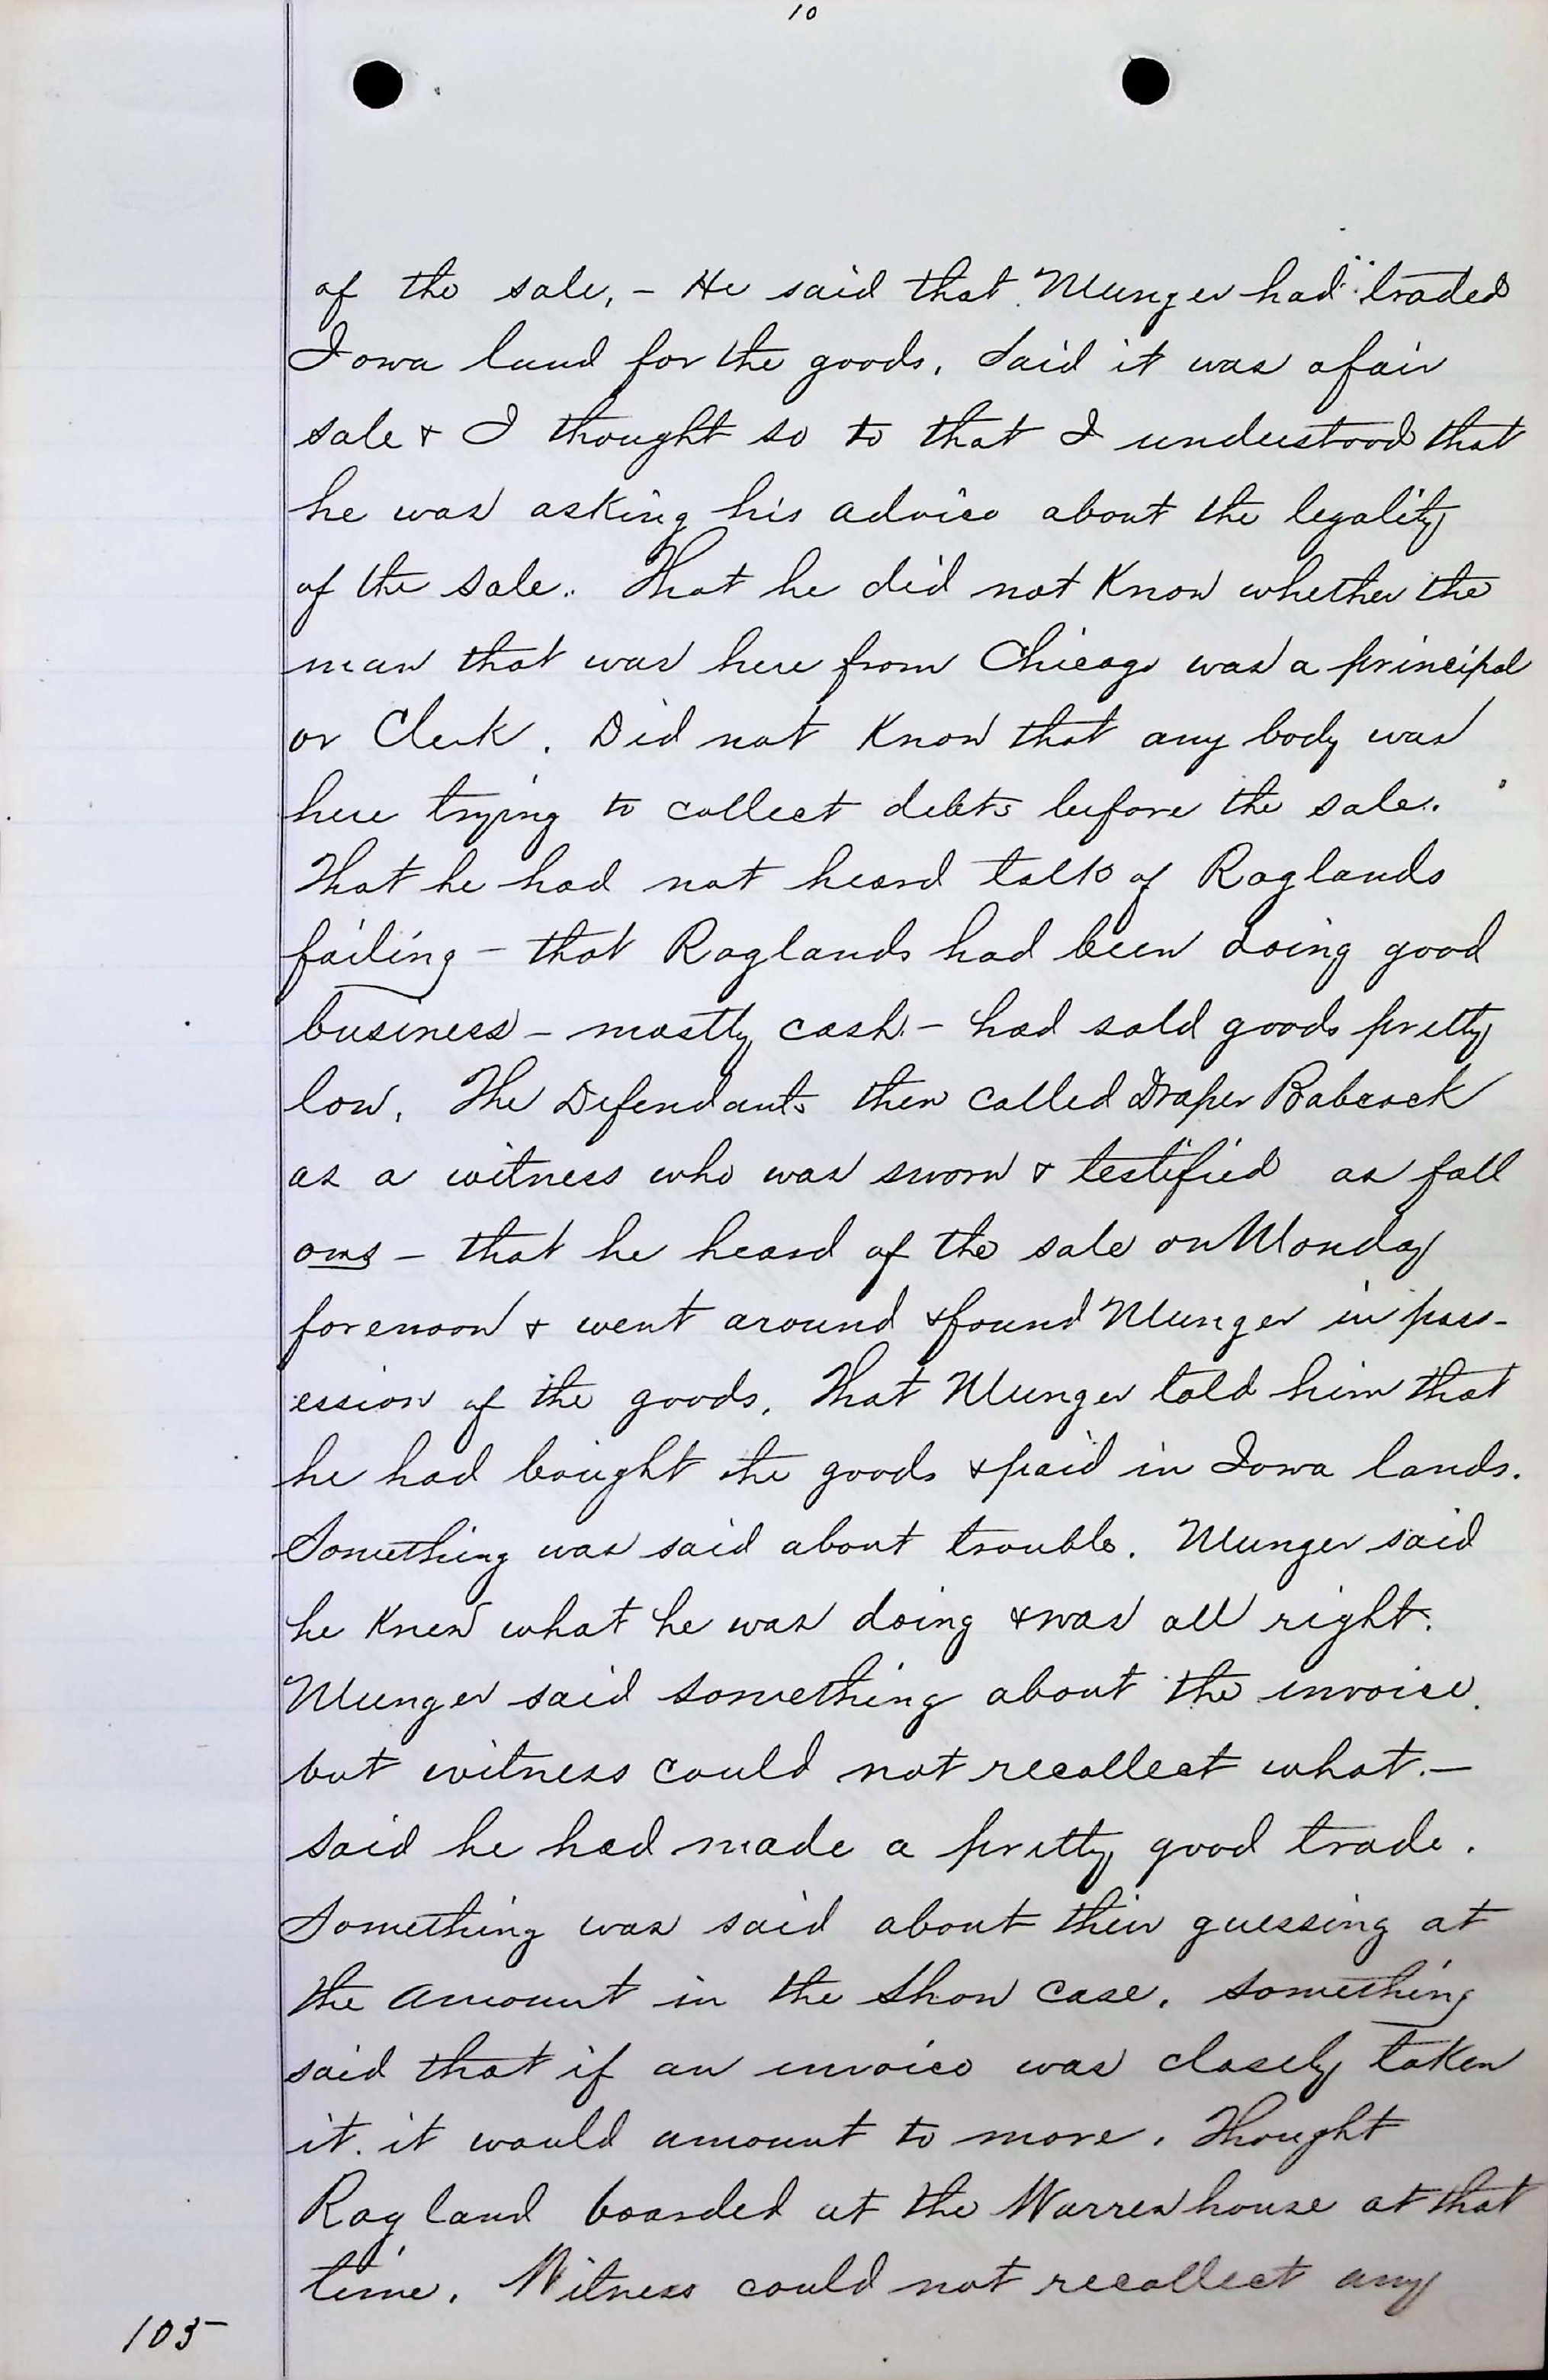 10
of the sale, - He said that Munger had traded
Iowa land for the goods. Said it was a fair
sale & I thought so to that I understood that
he was asking his advice about the legality
of the sale. That he did not Know whether the
man that was here from Chicago was a principal
or Clerk. Did not Know that any body was
here trying to collect debts before the sale.
That he had not heard talk of Raglands
failing - that Raglands had been doing good
business - mostly cash - had sold goods pretty
low. The Defendants then called Draper Babcock
as a witness who was sworn & testified as foll
ows - that he heard of the sale on Monday
forenoon & went around & found Munger in poss-
ession of the goods. That Munger told him that
he had bought the goods & paid in Iowa lands.
Something was said about trouble. Munger said
he Knew what he was doing & was all right.
Munger said something about the invoice.
but witness could not recollect what. -
said he had made a pretty good trade.
Something was said about their guessing at
the amount in the Show case. something
said that if an invoice was closely taken
it. it would amount to more. Thought
Ragland boarded at the Warren house at that
time. Witness could not recollect any
105